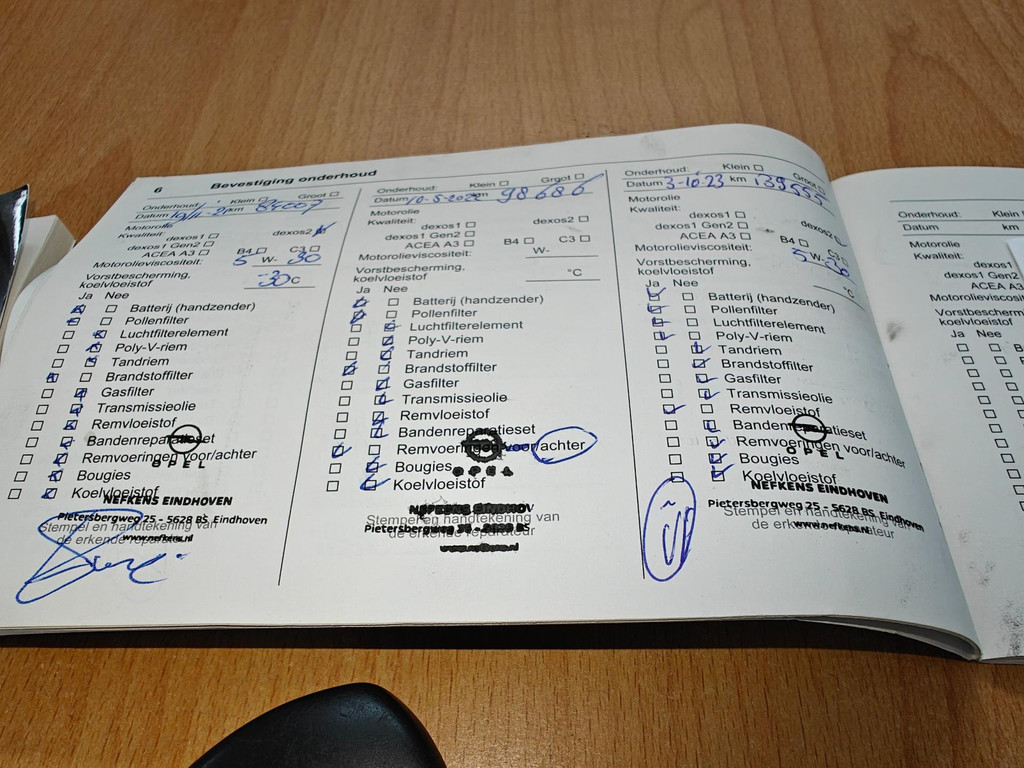 6 Bevestiging onderhoud
Onderhoud: Klein Groot
Datum 10/11-21 km
Motorolie
Kwaliteit: dexos1 dexos2
dexos1 Gen2
ACEA A3 B4 C3
Motorolieviscositeit: 5 W- 30
Vorstbescherming,
koelvloeistof -30°C
Ja Nee
Batterij (handzender)
Pollenfilter
Luchtfilterelement
Poly-V-riem
Tandriem
Brandstoffilter
Gasfilter
Transmissieolie
Remvloeistof
Bandenreparatieset
Remvoeringen voor/achter
Bougies
Koelvloeistof
OPEL
NEFKENS EINDHOVEN
Pietersbergweg 25 - 5628 BS Eindhoven
Stempel en handtekening van
www.nefkens.nl
de erkende reparateur
Onderhoud: Klein Groot
Datum 10-5-2022 km 98686
Motorolie
Kwaliteit: dexos1 dexos2
dexos1 Gen2
ACEA A3 B4 C3
Motorolieviscositeit: W-
Vorstbescherming,
koelvloeistof °C
Ja Nee
Batterij (handzender)
Pollenfilter
Luchtfilterelement
Poly-V-riem
Tandriem
Brandstoffilter
Gasfilter
Transmissieolie
Remvloeistof
Bandenreparatieset
Remvoeringen voor/achter
Bougies
Koelvloeistof
OPEL
NEFKENS EINDHOV
Stempel en handtekening van
Pietersbergweg 25 - 5628 BS
de erkende reparateur
www.nefkens.nl
Onderhoud: Klein Groot
Datum 3-10-23 km 139555
Motorolie
Kwaliteit: dexos1 dexos2
dexos1 Gen2
ACEA A3 B4 C3
Motorolieviscositeit: 5 W-30
Vorstbescherming,
koelvloeistof °C
Ja Nee
Batterij (handzender)
Pollenfilter
Luchtfilterelement
Poly-V-riem
Tandriem
Brandstoffilter
Gasfilter
Transmissieolie
Remvloeistof
Bandenreparatieset
Remvoeringen voor/achter
Bougies
Koelvloeistof
OPEL
NEFKENS EINDHOVEN
Pietersbergweg 25 - 5628 BS Eindhoven
Stempel en handtekening van
www.nefkens.nl
de erkende reparateur
Onderhoud: Klein
Datum km
Motorolie
Kwaliteit:
dexos1
dexos1 Gen2
ACEA A3
Motorolieviscositeit:
koelvloeistof
Ja Nee